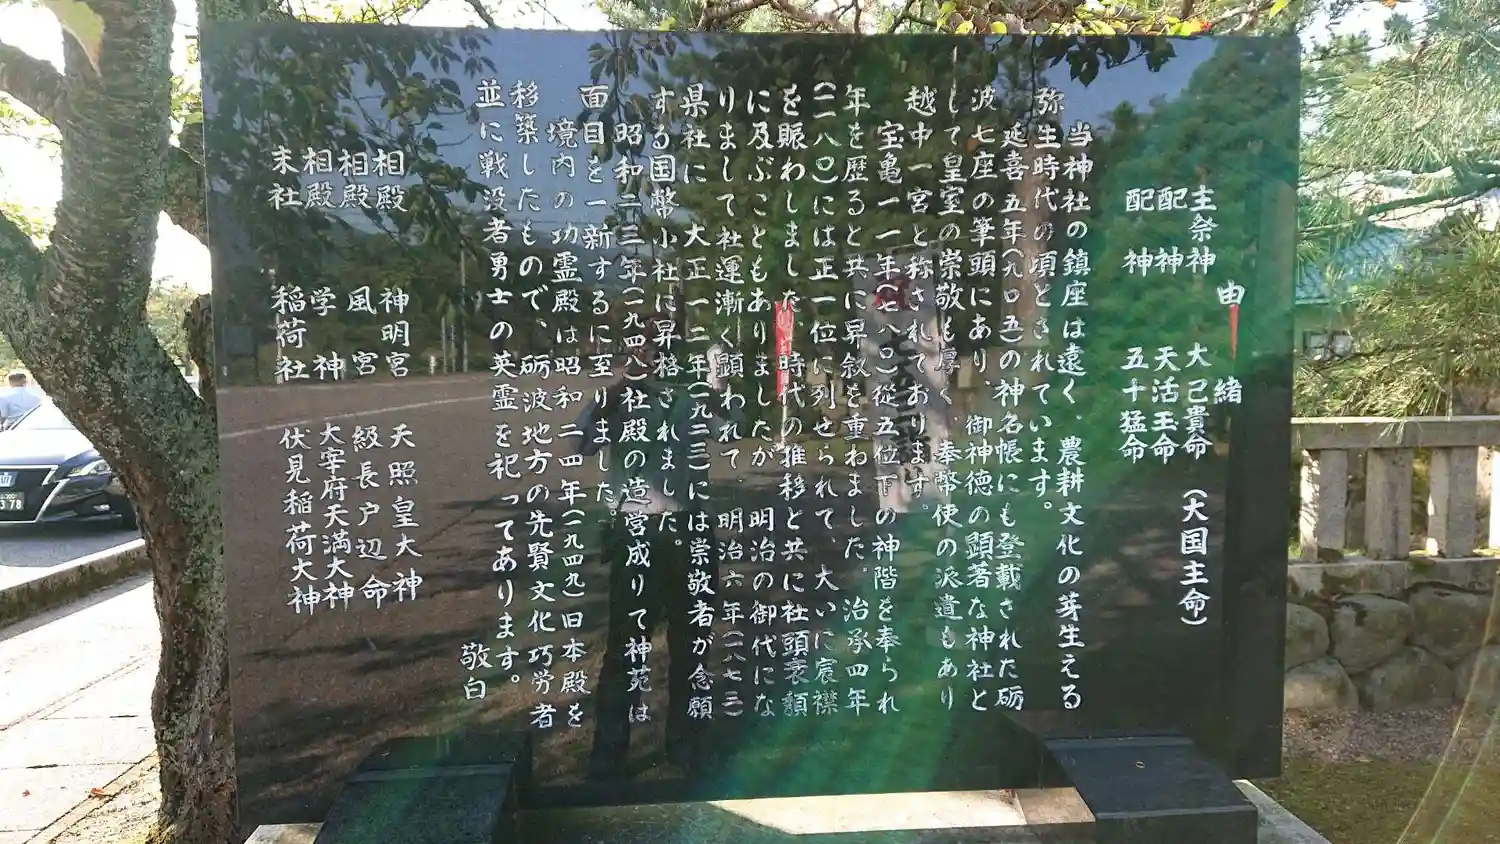 由緒
主祭神 大己貴命 (大国主命)
配神 天活玉命
配神 五十猛命
当神社の鎮座は遠く、農耕文化の芽生える
弥生時代の頃とされています。
延喜五年(九〇五)の神名帳にも登載された砺
波七座の筆頭にあり、御神徳の顕著な神社と
して皇室の崇敬も厚く、奉幣使の派遣もあり
越中一宮と称されております。
宝亀一一年(七八〇)従五位下の神階を奉られ
年を歴ると共に昇叙を重ねました。治承四年
(一一八〇)には正一位に列せられて、大いに宸襟
を賑わしました。時代の推移と共に社頭衰頽
に及ぶこともありましたが、明治の御代にな
りまして社運漸く顕われて、明治六年(一八七三)
県社に、大正一二年(一九二三)には崇敬者が念願
する国幣小社に昇格されました。
昭和二三年(一九四八)社殿の造営成りて神苑は
面目を一新するに至りました。
境内の功霊殿は昭和二四年(一九四九)旧本殿を
移築したもので、砺波地方の先賢文化巧労者
並に戦没者勇士の英霊を祀ってあります。
敬白
相殿 神明宮 天照皇大神
相殿 風宮 級長戸辺命
相殿 学神 大宰府天満大神
末社 稲荷社 伏見稲荷大神
378